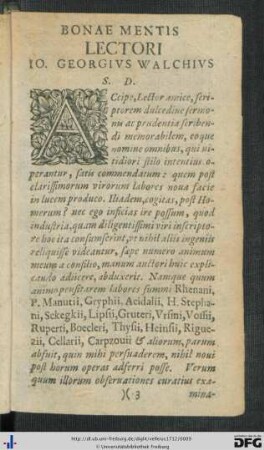 BONAE MENTIS
LECTORI
IO. GEORGIVS WALCHIVS
S. D.
ACcipe, Lector amice, scri-
ptorem dulcedine sermo-
nu ac prudentia scriben-
di memorabilem, eoque
nomine omnibus, qui ni-
tidiori stilo intentius o-
perantur, satis commendatum: quem post
clarissimorum virorum labores noua facie
in lucem produco. Iliadem, cogitas, post Ho-
merum? nec ego inficias ire possum, quod
industria, quam diligentissimi viri in scripto-
re hoc ita consumserint, vt nihil aliis ingeniis
reliquisse videantur, sæpe numero animum
meum a consilio, manum auctori huic expli-
cando adiicere, abduxerit. Namque quum
animo pensitarem labores summi Rhenani,
P. Manutii, Gryphii, Acidalii, H. Stepha-
ni, Sckegkii, Lipsii, Gruteri, Vrsini, Vossii,
Ruperti, Boecleri, Thysii, Heinsii, Rigue-
zii, Cellarii, Carpzouii & aliorum, parum
abfuit, quin mihi persuaderem, nihil noui
post horum operas adferri posse. Verum
quum illorum obseruationes curatius exa-
)( 3 mina-
http://dl.ub.uni-freiburg.de/diglit/velleius1712/0009
© Universitätsbibliothek Freiburg
DFG